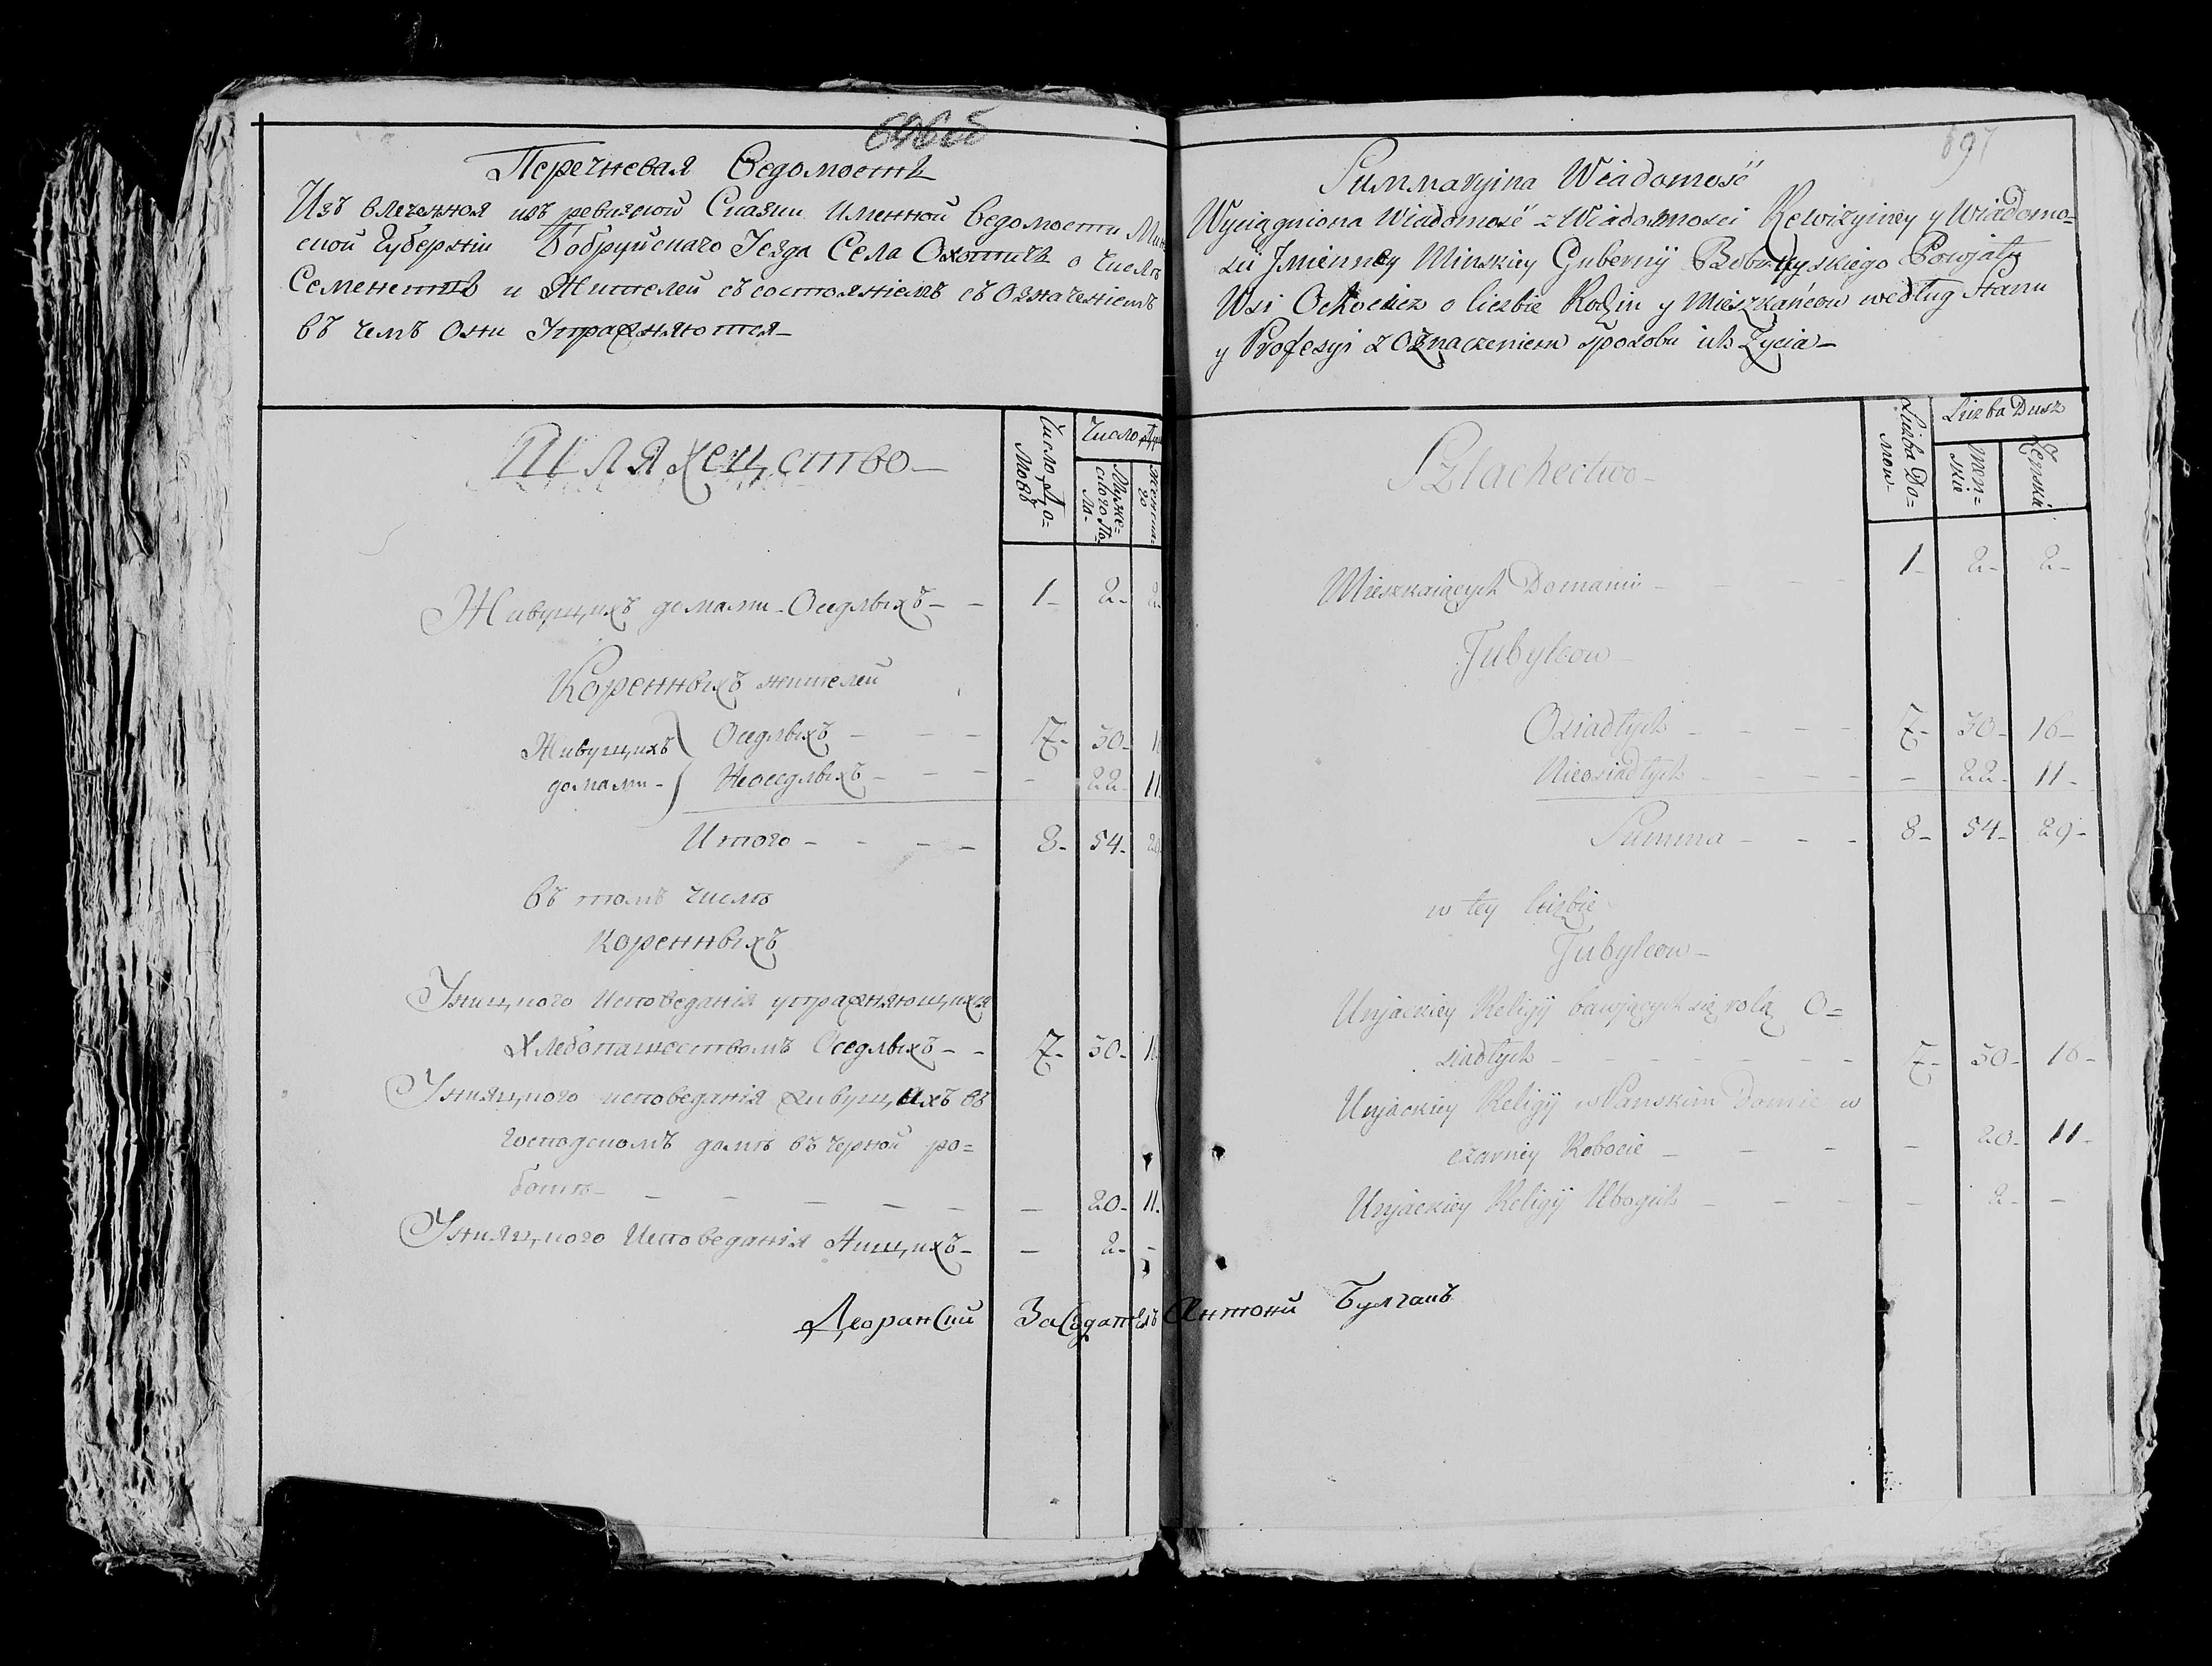 Перечневая Ведомость
Изъ влеченная изъ ревизской Сказки Именной ведомости Мин
ской Губерніи Бобруйскаго Уезда Села Охотичъ о числѣ
Семействъ и Жителей съ состояніемъ съ означеніемъ
въ чемъ Они Упражняются—
Шляхецство—
Число До=
мовъ
Число Ду
Муже=
скаго По=
ла-
Женска=
го
Живущихъ домами-Оседлыхъ— — 1- 2- 2-
Коренныхъ жителей
Живущихъ Оседлыхъ — — — 7- 30- 1
домами- Неоседлыхъ — — — - 22- 11
Итого — — — — 8- 54- 2
въ томъ числѣ
коренныхъ
Униацкого Исповеданія упражняющихся
Хлебопашествомъ Оседлыхъ— — 7- 30- 1
Униацкого исповеданія живущихъ въ
Господскомъ домѣ въ черной ро=
ботѣ— — — — — — — 20- 11-
Униацкого Исповеданія Нищихъ— — 2- -
Дворанский Заседатель Антони Булгакъ
697
Summaryina Wiadomość
Wyciągniona Wiadomość z Wiadomosci Rewizyiney y Wiadomo=
sci Jmienney Minskiey Gubernÿ Bobruyskiego Powjatu
Wsi Ochocicz o liczbie Rodzin y Mieszkańcow według Stanu
y Profesyi z Oznaczeniem sposobu ich Życia—
Szlachectwo—
Liczba Do=
mow-
Liczba Dusz
męn=
skie
Żenskie
Mieszkaiących Domami — — — 1- 2- 2-
Tubylcow—
Osiadłych — — — — 7- 30- 16-
Nieosiadłych — — — — - 22- 11-
Summa — — — 8- 54- 29-
w tey liczbie
Tubylcow—
Unjackiey Religÿ bawjących się rolą O=
siadłych — — — — — — — 7- 30- 16-
Unjackiey Religÿ w Panskim Domie w
czarney Robocie — — — — - 20- 11-
Unjackiey Religÿ Ubogich — — — — - 2- -